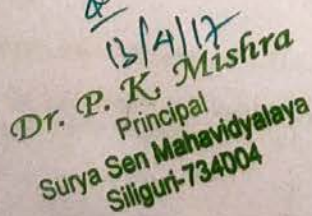 13/4/17
Dr. P. K. Mishra
Principal
Surya Sen Mahavidyalaya
Siliguri-734004